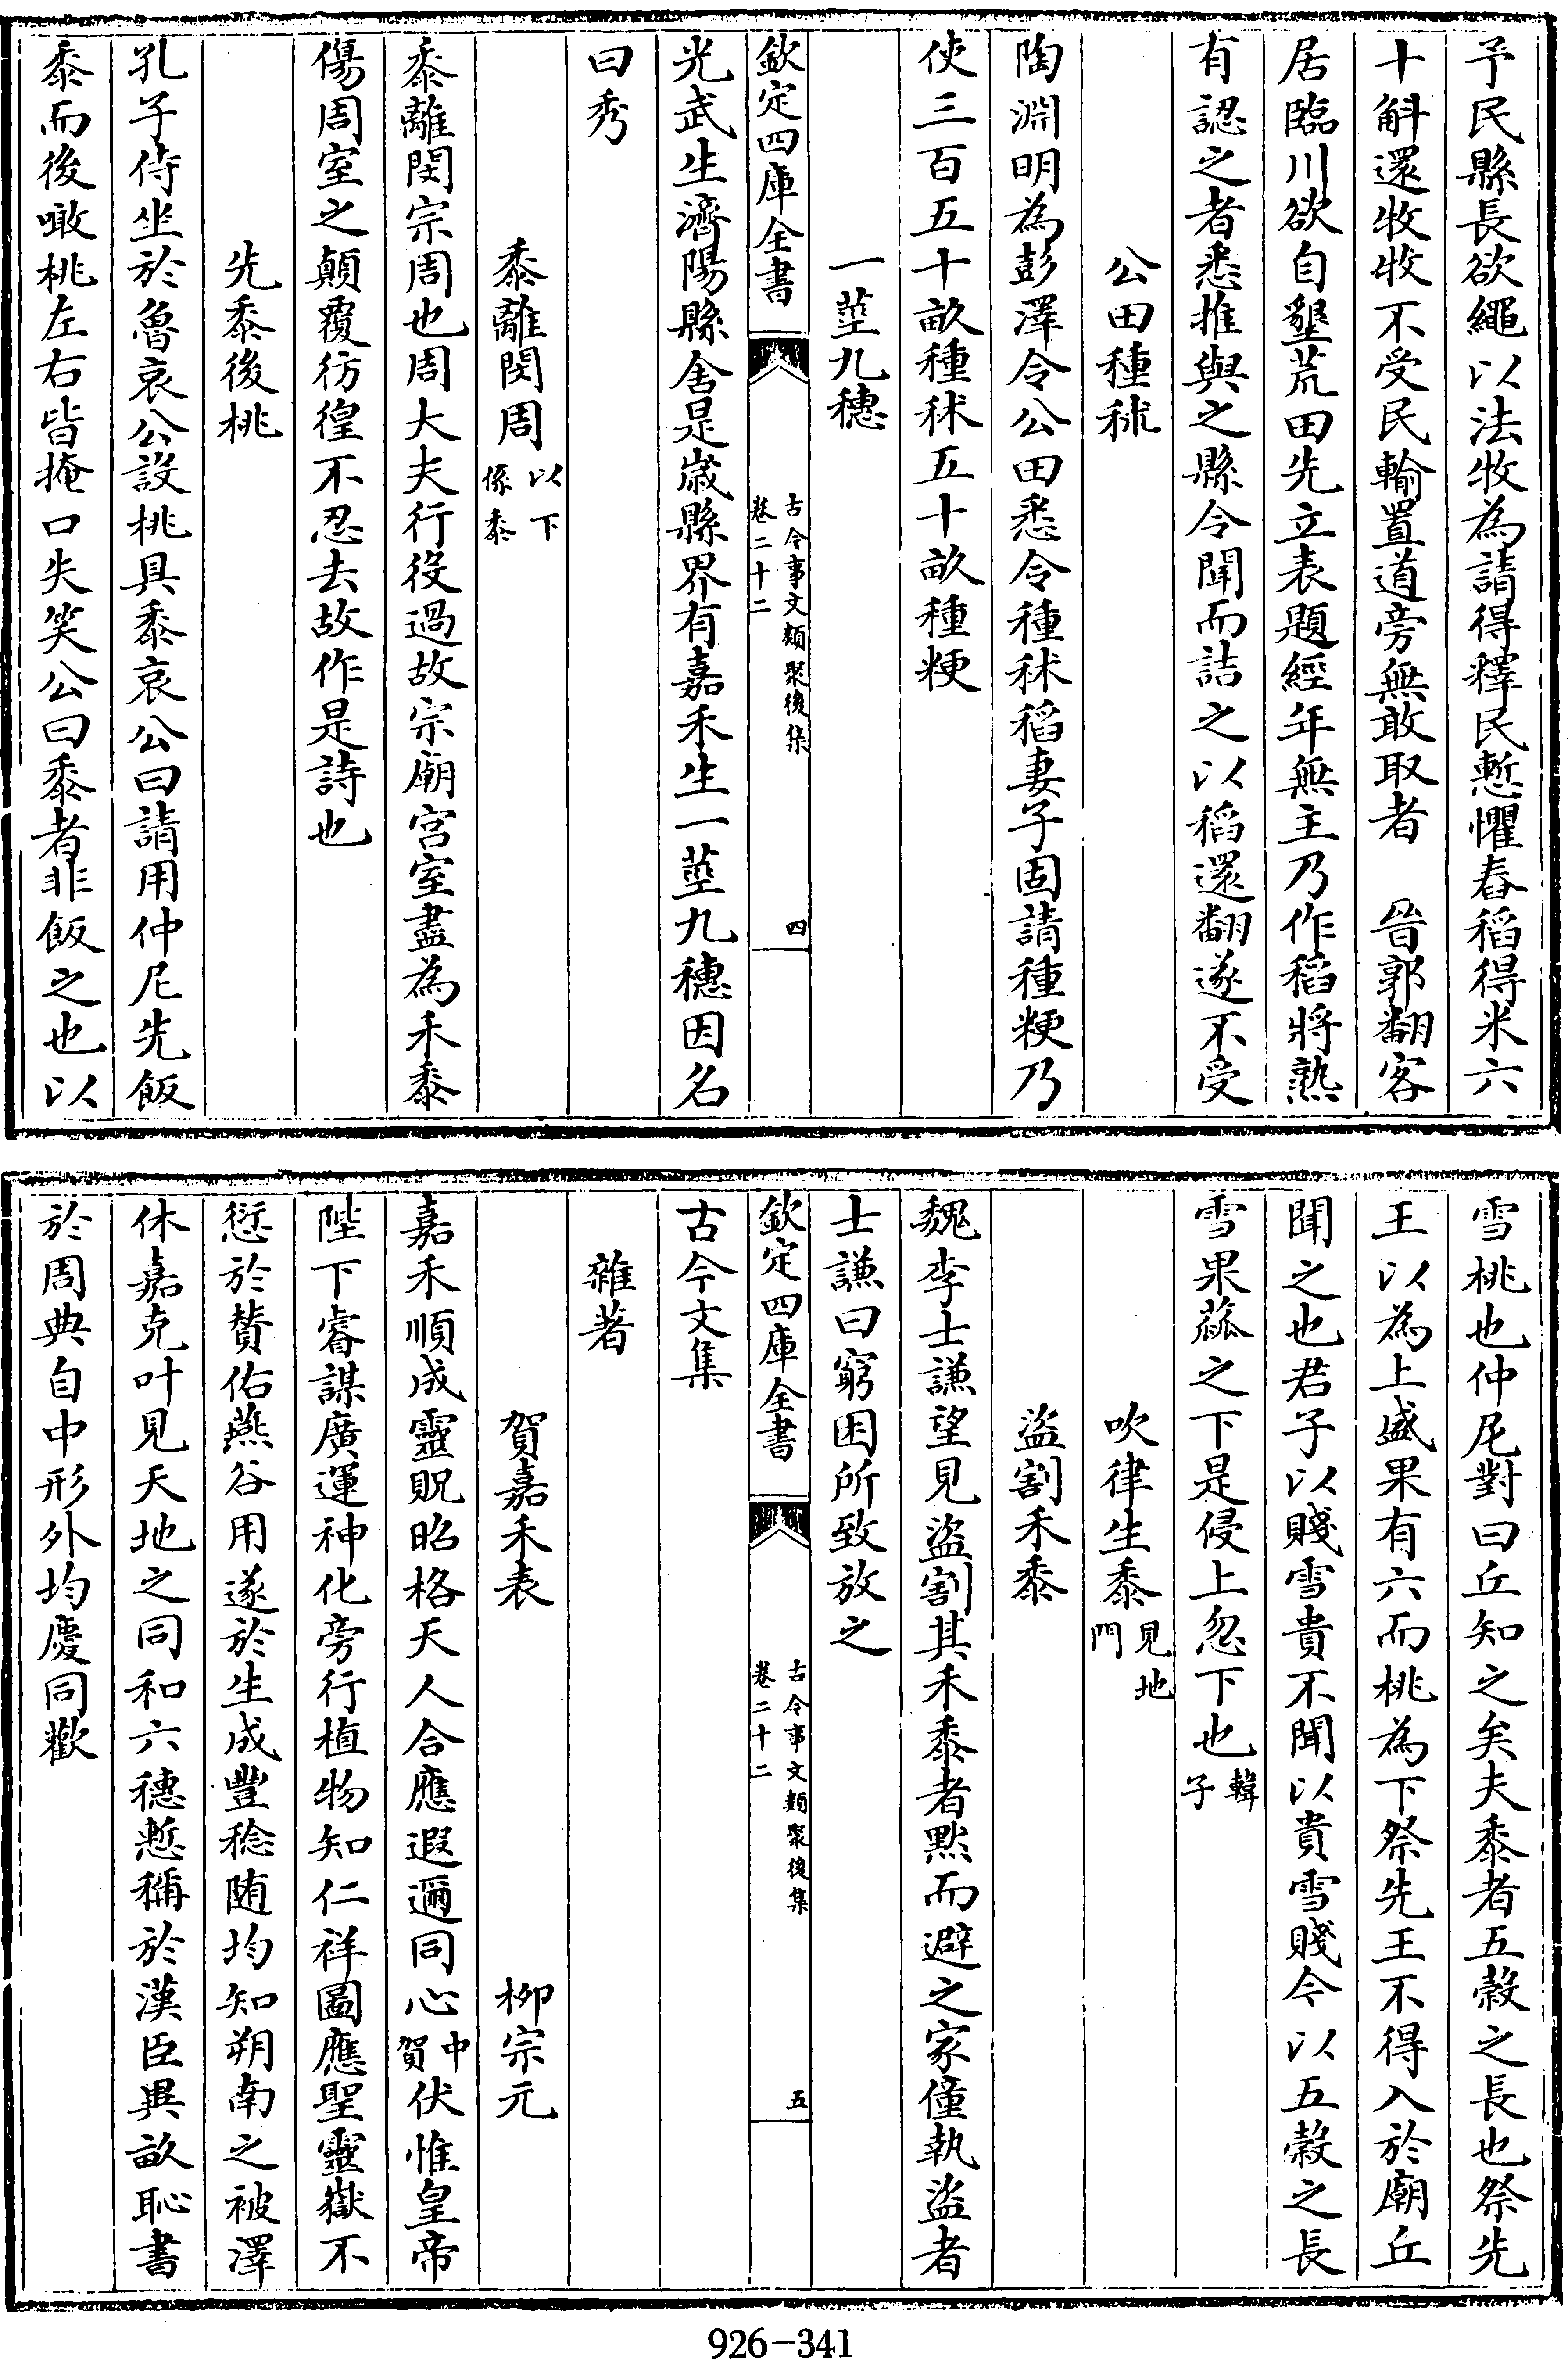 予民縣長欲繩以法牧為請得釋民慙懼舂稻得米六
十斛還牧牧不受民輸置道旁無敢取者　晉郭翻客
居臨川欲自墾荒田先立表題經年無主乃作稻將熟
有認之者悉推與之縣令聞而詰之以稻還翻遂不受
公田種秫
陶淵明為彭澤令公田悉令種秫稻妻子固請種粳乃
使三百五十畝種秫五十畝種粳
一莖九穗
欽定四庫全書
古今事文類聚後集
卷二十二
四
光武生濟陽縣舍是嵗縣界有嘉禾生一莖九穗因名
曰秀
黍離閔周以下係黍
黍離閔宗周也周大夫行役過故宗廟宮室盡為禾黍
傷周室之顛覆彷徨不忍去故作是詩也
先黍後桃
孔子侍坐於魯哀公設桃具黍哀公曰請用仲尼先飯
黍而後噉桃左右皆掩口失笑公曰黍者非飯之也以
雪桃也仲尼對曰丘知之矣夫黍者五穀之長也祭先
王以為上盛果有六而桃為下祭先王不得入於廟丘
聞之也君子以賤雪貴不聞以貴雪賤今以五穀之長
雪果蓏之下是侵上忽下也韓子
吹律生黍見地門
盜割禾黍
魏李士謙望見盜割其禾黍者黙而避之家僮執盜者
士謙曰窮困所致放之
欽定四庫全書
古今事文類聚後集
卷二十二
五
古今文集
雜著
賀嘉禾表　柳宗元
嘉禾順成靈貺昭格天人合應遐邇同心中賀伏惟皇帝
陛下睿謀廣運神化旁行植物知仁祥圖應聖靈嶽不
愆於贊佑燕谷用遂於生成豐稔隨均知朔南之被澤
休嘉克叶見天地之同和六穗慙稱於漢臣異畝恥書
於周典自中形外均慶同歡
926-341